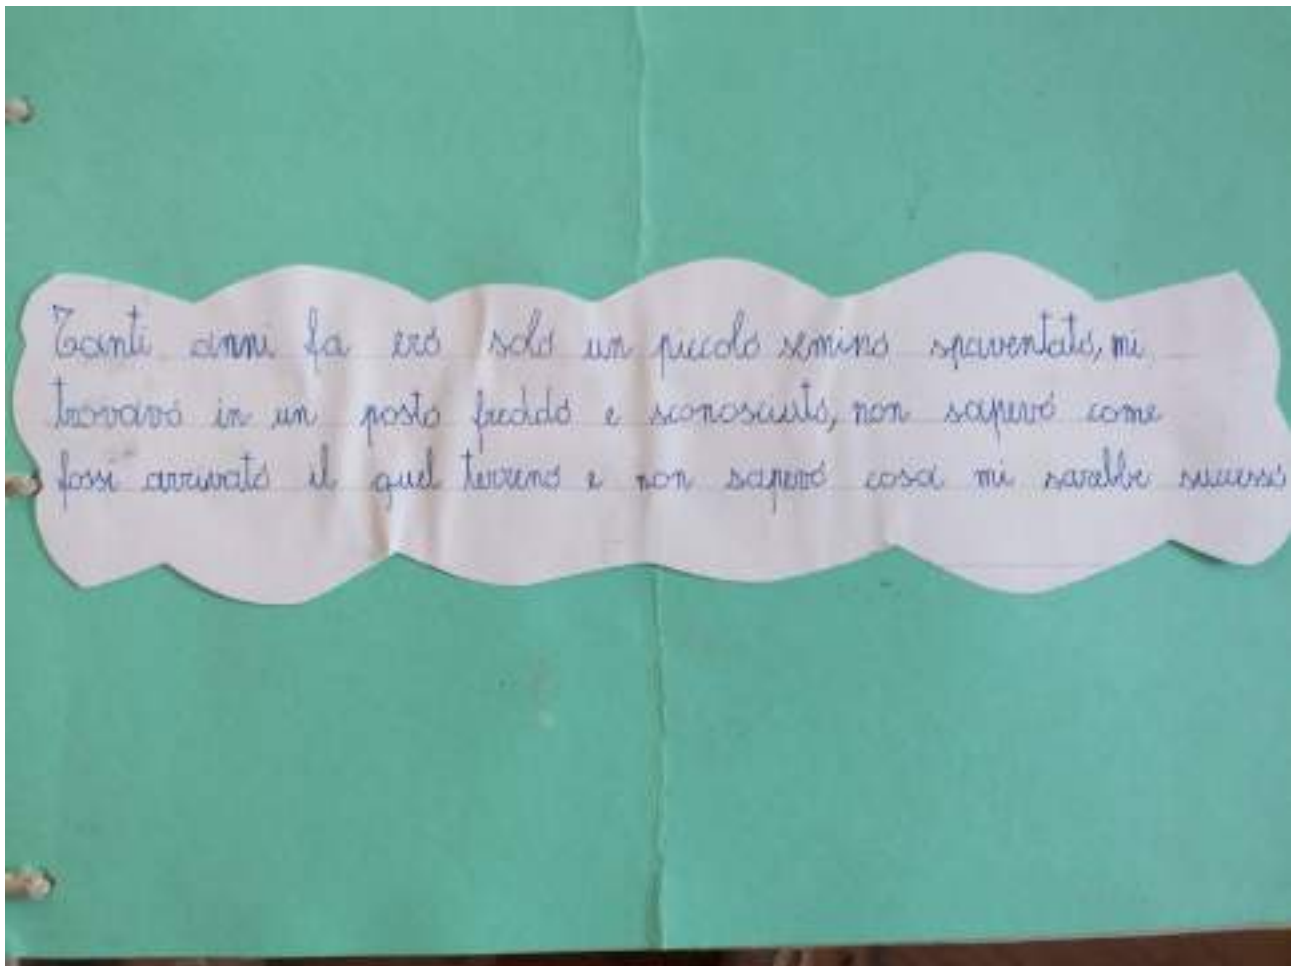 Tanti anni fa ero solo un piccolo semino spaventato, mi
trovavo in un posto freddo e sconosciuto, non sapevo come
fossi arrivato il quel terreno e non sapevo cosa mi sarebbe successo